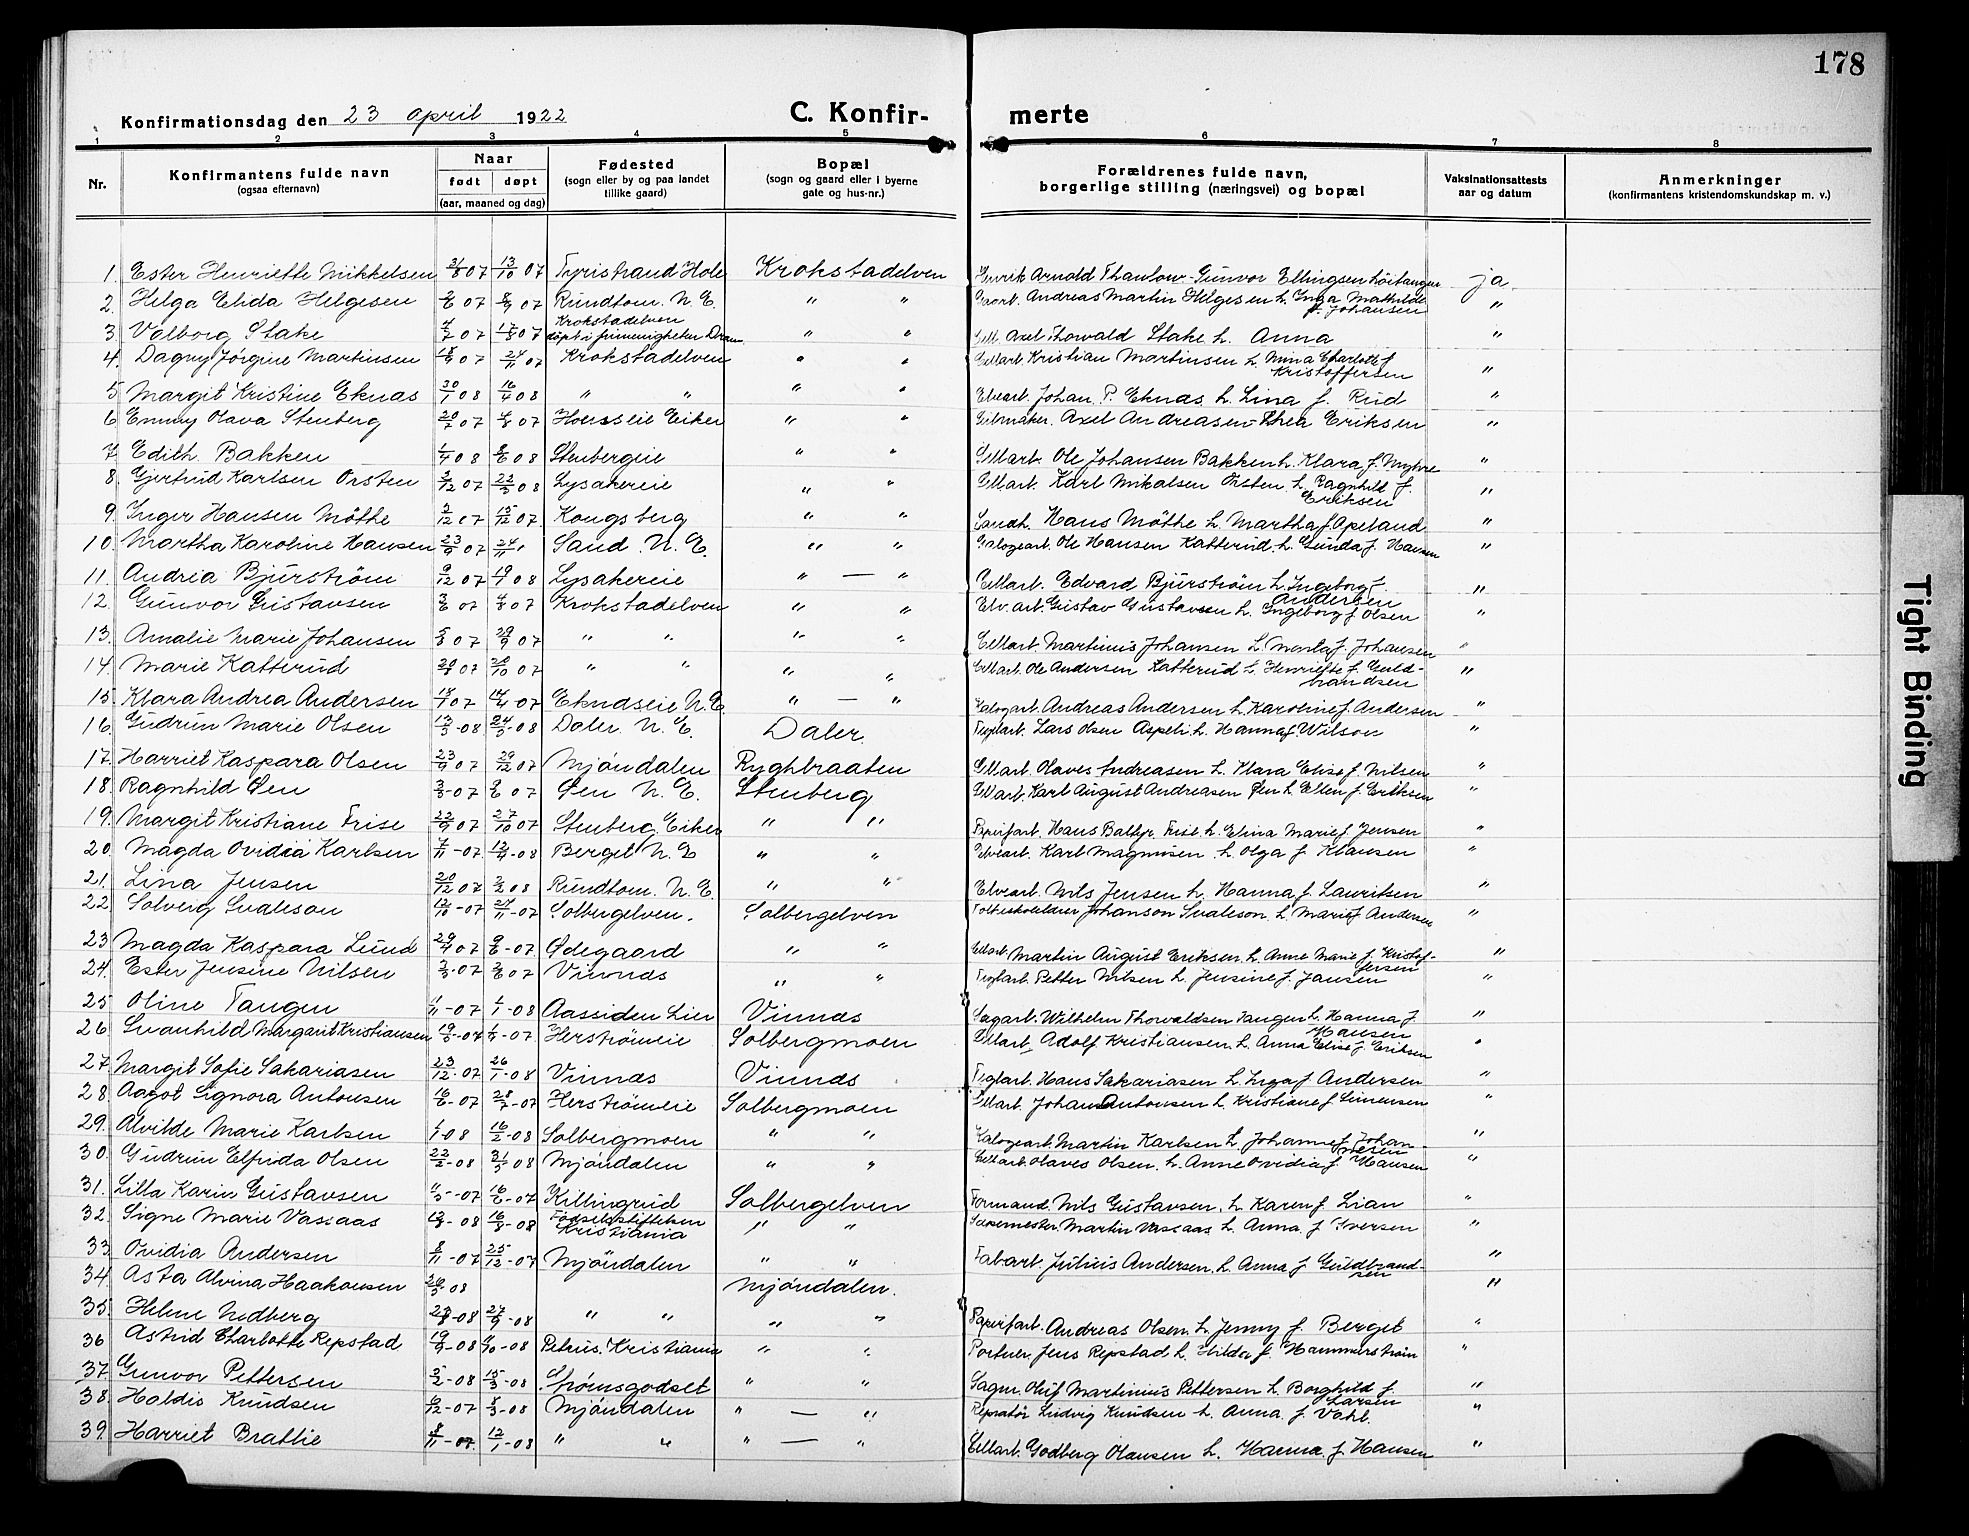 178
Konfirmationsdag den 23 april 1922
C. Konfir-
merte
1 2 3 4 5 6 7 8
Nr.
Konfirmantens fulde navn
(ogsaa efternavn)
Naar
født døpt
(aar, maaned og dag)
Fødested
(sogn eller by og paa landet
tillike gaard)
Bopæl
(sogn og gaard eller i byerne
gate og hus-nr.)
Forældrenes fulde navn,
borgerlige stilling (næringsvei) og bopæl
Vaksinationsattests
aar og datum
Anmerkninger
(konfirmantens kristendomskundskap m. v.)
1. Ester Henriette Mikkelsen 31/8 07 13/10 07 Tyristrand Hole Krokstadelven Henrik Arnold Thaulow - Gunvor Ellingsen ja
2. Helga Elida Helgesen 07 07 Rundtom. N. E. " " Andreas Martin Helgesen h. Inga Mathilde f. Johansen "
3 Valborg Stake 07 07 Krokstadelven døpt i frimenigheten Dram. " " Axel Thorvald Stake h. Anna "
4. Dagny Jørgine Martinsen 07 24/11 07 Krokstadelven " " Cellart. Kristian Martinsen h. Mina Charlotte f. Kristoffersen "
5 Margit Kristine Eknæs 30/1 08 16/4 08 " " " " Elvearb. Johan P. Eknæs h. Lina f. Rud "
6 Emmy Olava Stenberg 07 07 Eiker " " Axel Andreasen - Thea Eriksen "
7 Edith Bakken 08 08 Stenbergeie " " Cellart. Ole Johansen Bakken h. Klara f. Myhre "
8. Gjertrud Karlsen Orsten 07 22/3 08 Lysakereie " " Cellart. Karl Mikalsen Orsten h. Ragnhild f. Eriksen "
9. Inger Hansen Møthe 07 15/12 07 Kongsberg " " Hans Møthe h. Martha f. Apeland "
10. Martha Karoline Hansen 23/9 07 24/11 " Sand N. E. " " Ole Hansen Katterud h. Gunda f. Hansen "
11. Andrea Bjurstrøm 9/12 07 08 Lysakereie " — " Cellart. Edvard Bjurstrøm h. Ingeborg f. Andersen "
12. Gunvor Gustavsen 07 07 Krokstadelven " " Elv.art. Gustav Gustavsen h. Ingeborg f. Olsen "
13. Amalie Marie Johansen 07 29/9 07 " " " " Cellart. Martinius Johansen h. f. Johansen "
14. Marie Katterud 07 07 " " " " Cellart. Ole Andersen Katterud h. Henriette f. Guldbrandsen "
15. Klara Andrea Andersen 07 07 N. E. " — " Andreas Andersen h. Karoline f. Andersen "
16. Gudrun Marie Olsen 13/3 - 08 24/5 - 08 Daler N. E. Daler Teglart. Lars Olsen Aspeli h. Hanna f. Wilson "
17. Harriet Kaspara Olsen 23/9 07 29/12 07 Mjøndalen Ryghbraaten Cellart. Olaves Andreasen h. Klara Elise f. Nilsen "
18. Ragnhild Øen 07 07 Øen N. E. Stenberg Cellart. Karl August Andreasen Øen h. Ellen f. Eriksen "
19. Margit Kristiane Frise 22/9 07 27/10 07 Stenberg Eiker " " Papirfart. Hans Baltzer Frise h. Elina Marie f. Jensen "
20. Magda Ovidia Karlsen 07 08 Berget N. E " " Elveart. Karl Magnusen h. Olga f. Klausen "
21. Lina Jensen 20/12 07 2/2 08 Rundtom. N. E. " " Elveart. Nils Jensen h. Hanna f. Lauritsen "
22 Solveig Svaleson 12/10 - 07 24/11 - 07 Solbergelven. Solbergelven Johanson Svaleson h. Marie f. Andersen "
23 Magda Kaspara Lund 29/4 07 9/6 - 07 Ødegaard " " Cellart. Martin August Eriksen h. Anne Marie f. Kristoffersen "
24. Ester Jensine Nilsen 07 07 Vinnæs " " Teglart. Petter Nilsen h. Jensine f. Jansen "
25 Oline Tangen - 07 1/1 - 08 Aassiden Lier Vinnæs Sagart. Wilhelm Thorvaldsen Tangen h. Hanna f. Hansen "
26 Svanhild Margarit Kristiansen - 07 - 07 Herstrømeie Solbergmoen Cellart. Adolf Kristiansen h. Anna Elise f. Eriksen "
27 Margit Sofie Sakariasen 23/12 - 07 26/1 - 08 Vinnæs Vinnæs Teglart. Hans Sakariasen h. Inga f. Andersen "
28. Aagot Signora Antonsen 16/6 - 07 28/7 - 07 Herstrømeie Solbergmoen Cellart. Johan Antonsen h. Kristiane f. Simensen "
29. Alvilde Marie Karlsen 1/1 08 16/2 - 08 Solbergmoen " " Martin Karlsen h. Johanne f. Johannesen "
30. Gudrun Elfrida Olsen 22/2 - 08 31/5 08 Mjøndalen " " Cellart. Olaves Olsen h. Anne Ovidia f. Hansen "
31. Lilla Karin Gustavsen - 07 16/6 - 07 Killingrud Solbergelven Formand. Nils Gustavsen h. Karen f. Lian "
32. Signe Marie Vassaas - 08 16/8 - 08 Fødselsstiftelsen Kristiania " " Martin Vassaas h. Anna f. Iversen "
33 Ovidia Andersen 8/11 - 07 25/12 - 07 Mjøndalen " " Fabart. Julius Andersen h. Anna f. Guldbrandsen "
34 Asta Alvina Haakonsen 08 Mjøndalen. "
35. Helene Nedberg - 08 27/9 - 08 " " " " Papirfart. Andreas Olsen h. Jenny f. Berget "
36 Astrid Charlotte Repstad 19/9 - 08 - 08 Petrus. Kristiania " " Portner. Jens Repstad h. Hilda f. Hammerstrøm "
37. Gunvor Pettersen 5/2 - 08 15/3 - 08 Strømsgodset " " Sagm. Oluf Martinius Pettersen h. Borghild f. Larsen "
38. Haldis Knudsen - 07 - 08 Mjøndalen " — " Ludvig Knudsen h. Anna f. Vahl. "
39. Harriet Brattie 8/11 - 07 12/1 - 08 " " " — " Cellart. Godberg Olausen h. Hanna f. Hansen "
Tight Binding